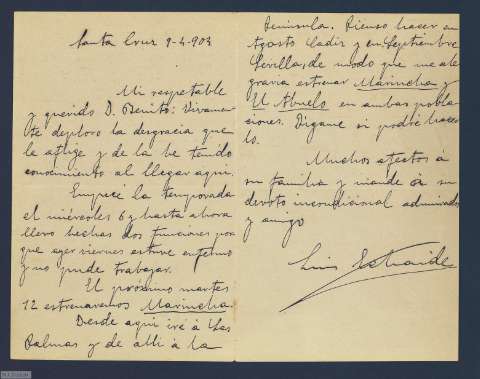 Santa Cruz 9-4-904
Mi respetable
y querido D. Benito: Vivamen-
te deploro la desgracia que
le aflije y de la he tenido
conocimiento al llegar aquí.
Empecé la temporada
el miércoles 6 y hasta ahora
llevo hechas dos funciones por
que ayer viernes estuve enfermo
y no pude trabajar.
El próximo martes
12 estrenaremos Mariucha.
Desde aquí iré á Las
Palmas y de allí á la
Península. Pienso hacer en
Agosto Cadiz y en Septiembre
Sevilla, de modo que me ale
graria estrenar Mariucha y
El Abuelo en ambas pobla-
ciones. Dígame si podré hacer
lo.
Muchos afectos á
su familia y mande á su
devoto incondicional admirador
y amigo
Luis